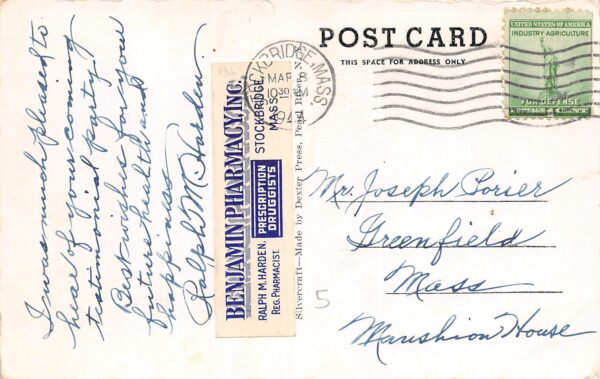 I was much pleased to
hear of your coming
testimonial party.
Best wishes for your
future health and
happiness
Ralph M. Harden.
BENJAMIN PHARMACY, INC.
STOCKBRIDGE,
MASS.
RALPH M. HARDEN,
REG. PHARMACIST.
PRESCRIPTION
DRUGGISTS
Silvercraft—Made by Dexter Press, Pearl River, N.
POST CARD
THIS SPACE FOR ADDRESS ONLY
STOCKBRIDGE, MASS.
MAR 8
10 30 AM
UNITED STATES OF AMERICA
INDUSTRY AGRICULTURE
FOR DEFENSE
POSTAGE 1 CENT
Mr. Joseph Porier
Greenfield
Mass
Manshion House
5